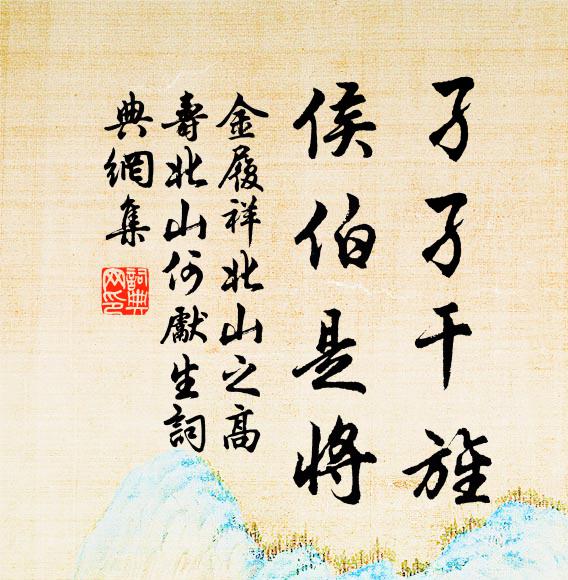 孑孑干旌
侯伯是將
金履祥北山之高
壽北山何獻生詞
典網集
詞典網印